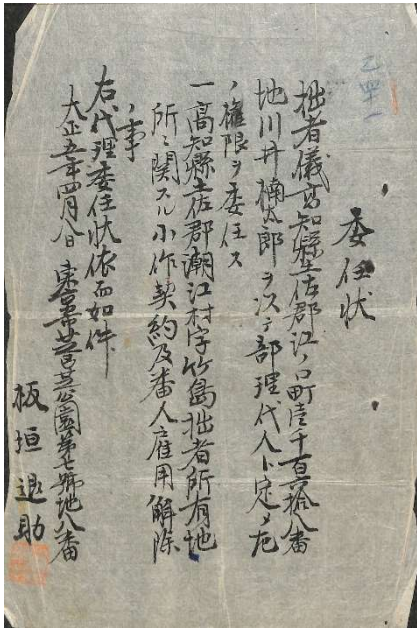 乙四一
委任状
拙者儀高知縣土佐郡江ノ口町壱千百六拾八番
地川井楠太郎ヲ以テ部理代人ト定メ左
ノ権限ヲ委任ス
一高知縣土佐郡潮江村字竹島拙者所有地
所ニ関スル小作契約及番人雇用解除
ノ事
右代理委任状依而如件
大正五年四月八日 東京市芝区芝公園第七號地八番
板垣退助